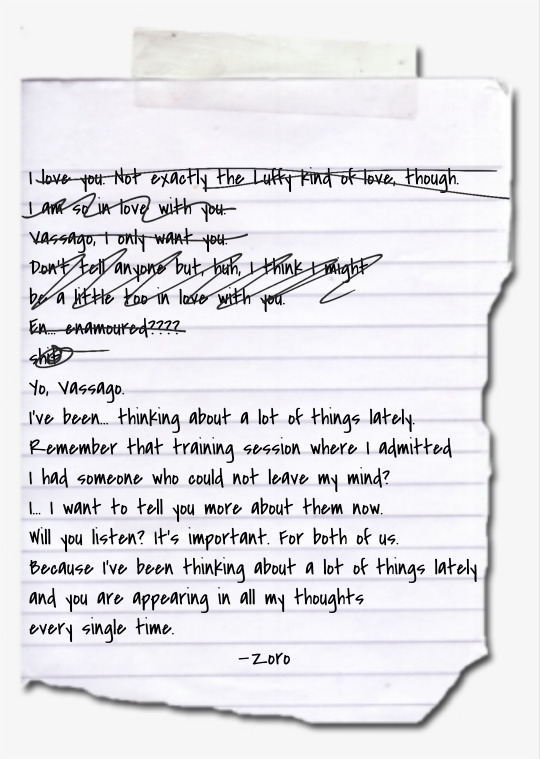 I love you. Not exactly the Luffy kind of love, though.
I am so in love with you.
Vassago, I only want you.
Don't tell anyone but, huh, I think I might
be a little too in love with you.
En... enamoured????
shit
Yo, Vassago.
I've been... thinking about a lot of things lately.
Remember that training session where I admitted
I had someone who could not leave my mind?
I... I want to tell you more about them now.
Will you listen? It's important. For both of us.
Because I've been thinking about a lot of things lately
and you are appearing in all my thoughts
every single time.
-Zoro